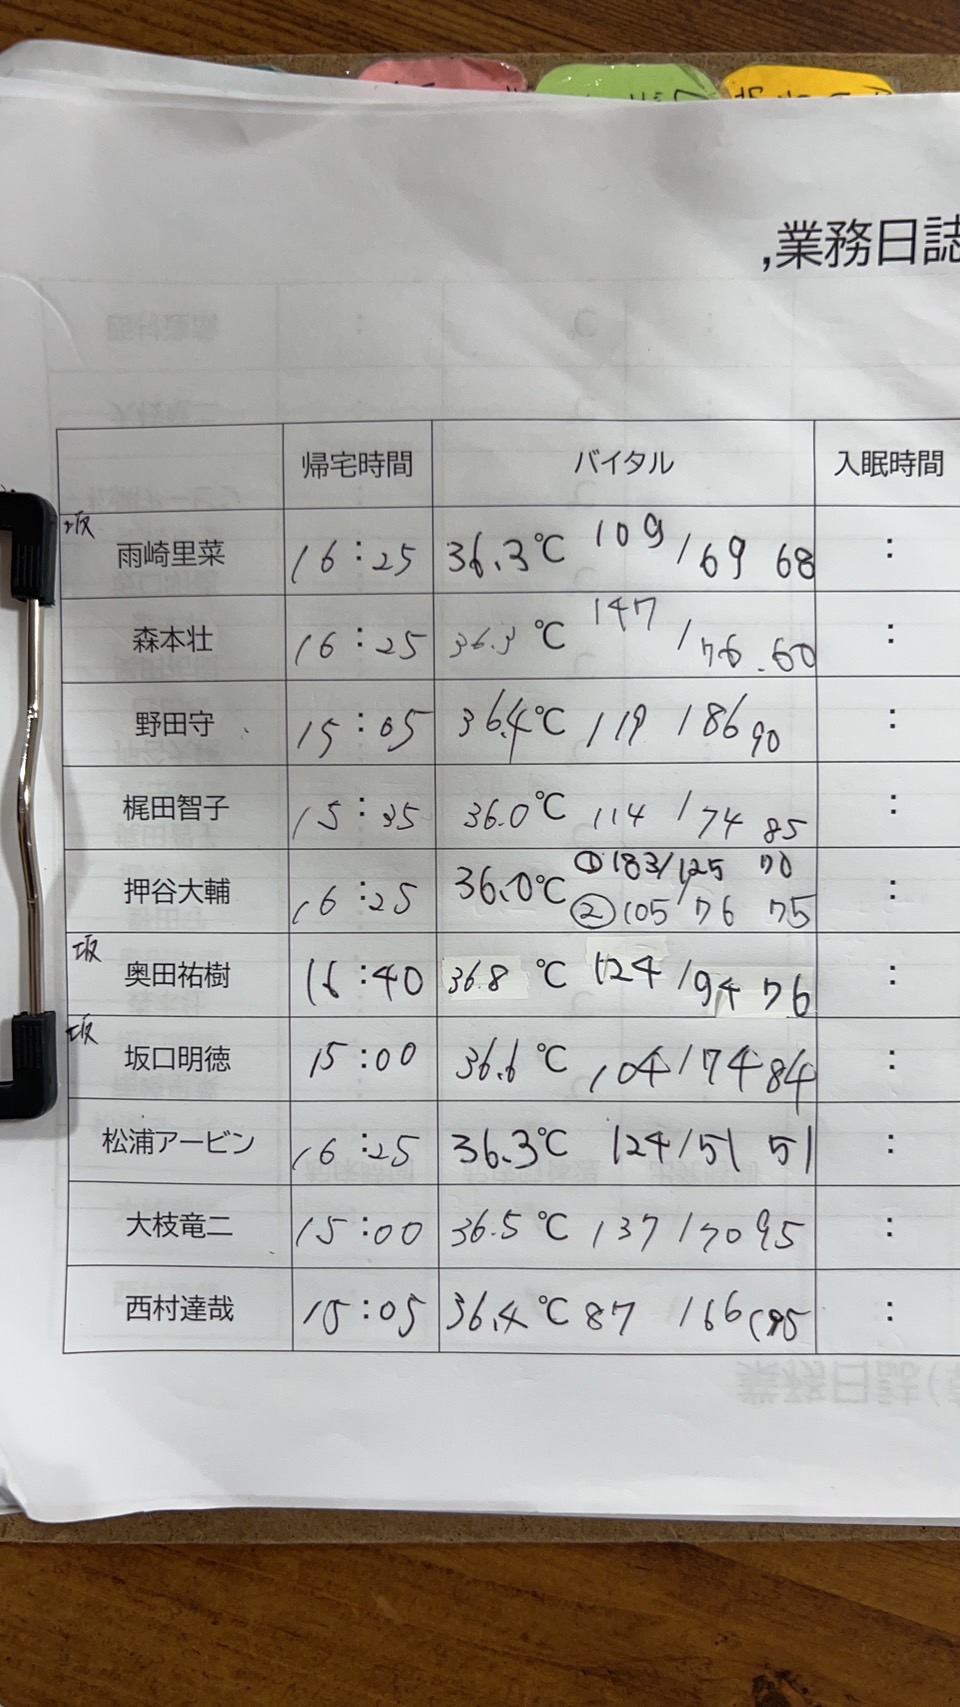 ,業務日誌
帰宅時間 バイタル 入眠時間
坂
雨崎里菜 16:25 36.3℃ 109/69 68 :
森本壮 16:25 36.3℃ 147/76.60 :
野田守 15:05 36.4℃ 119/86 90 :
梶田智子 15:35 36.0℃ 114/74 85 :
押谷大輔 16:25 36.0℃ ①183/125 70 :
②105/76 75
坂
奥田祐樹 16:40 36.8℃ 124/94 76 :
坂
坂口明徳 15:00 36.6℃ 104/74 84 :
松浦アービン 16:25 36.3℃ 124/51 51 :
大枝竜二 15:00 36.5℃ 137/70 95 :
西村達哉 15:05 36.4℃ 87/66 :